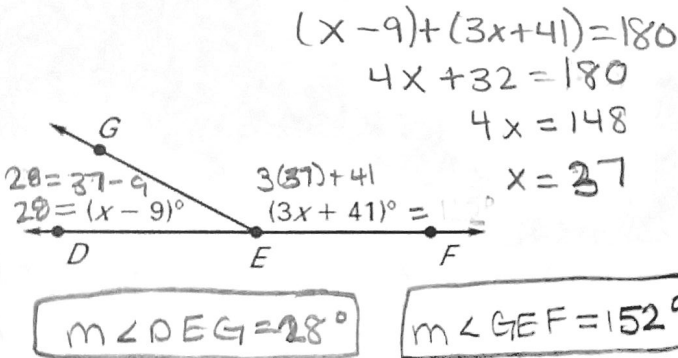 (x-9)+(3x+41)=180
4x+32=180
4x=148
x=37
G
28=37-9
3(37)+41
28=(x − 9)°
(3x + 41)° =
D
E
F
m∠DEG=28°
m∠GEF=152°